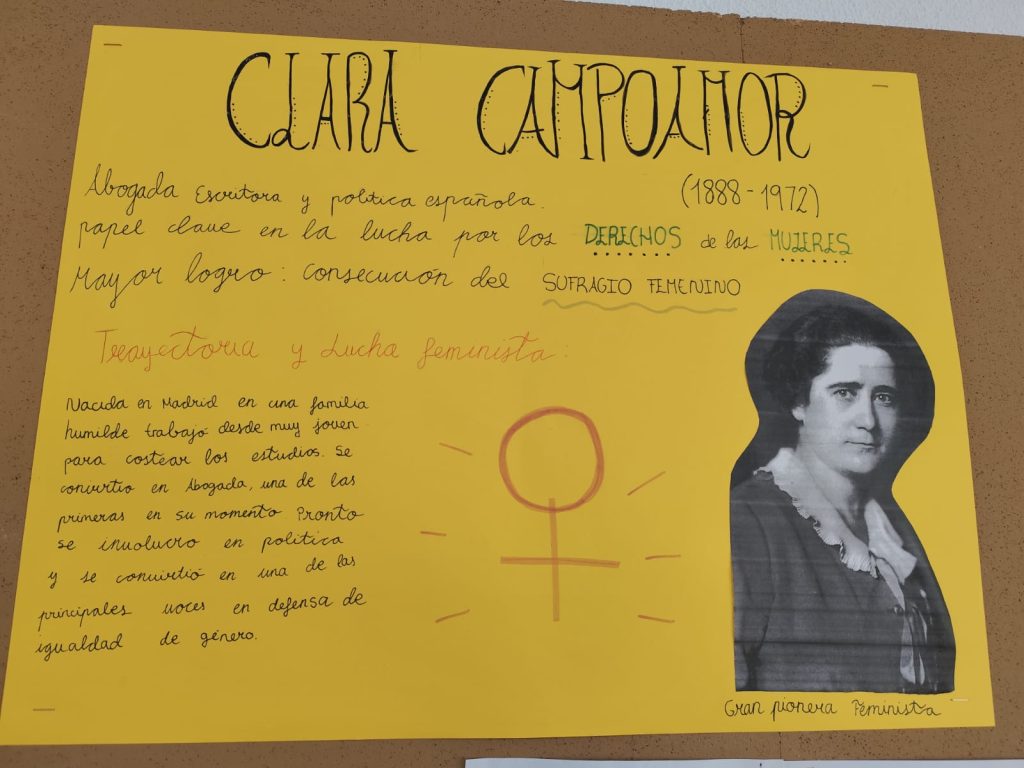 CLARA CAMPOAMOR
(1888-1972)
Abogada Escritora y política española.
papel clave en la lucha por los DERECHOS de las MUJERES
Mayor logro: consecución del SUFRAGIO FEMENINO
Trayectoria y Lucha feminista:
Nacida en Madrid en una familia
humilde trabajó desde muy joven
para costear los estudios. Se
convirtio en Abogada, una de las
primeras en su momento Pronto
se involucro en politica
y se convirtió en una de las
principales voces en defensa de
igualdad de género.
Gran pionera Feminista